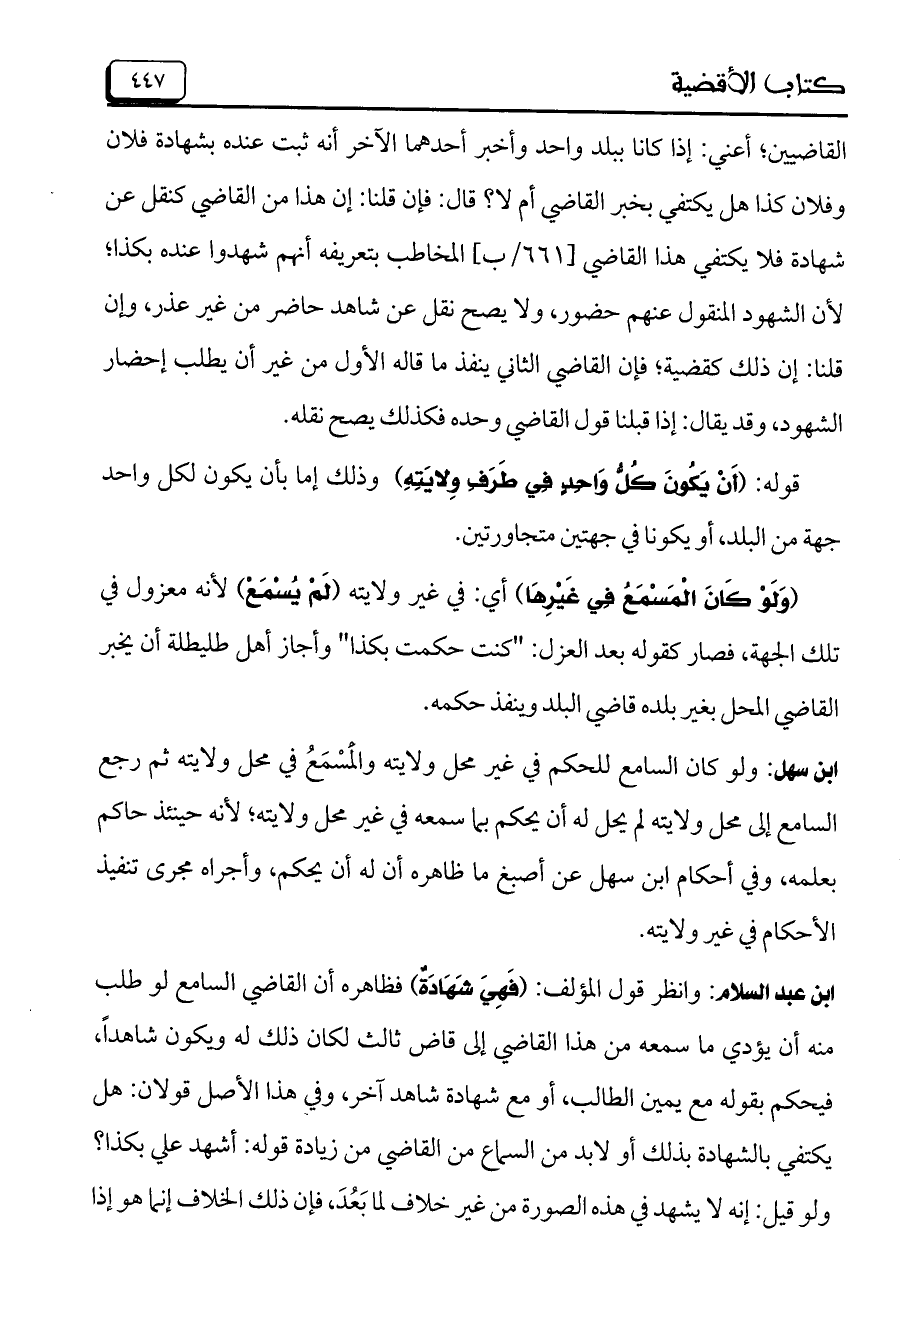 كتاب الأقضية
٤٤٧
القاضيين؛ أعني: إذا كانا ببلد واحد وأخبر أحدهما الآخر أنه ثبت عنده بشهادة فلان
وفلان كذا هل يكتفي بخبر القاضي أم لا؟ قال: فإن قلنا: إن هذا من القاضي كنقل عن
شهادة فلا يكتفي هذا القاضي [٦٦١/ ب] المخاطب بتعريفه أنهم شهدوا عنده بكذا؛
لأن الشهود المنقول عنهم حضور، ولا يصح نقل عن شاهد حاضر من غير عذر، وإن
قلنا: إن ذلك كقضية؛ فإن القاضي الثاني ينفذ ما قاله الأول من غير أن يطلب إحضار
الشهود، وقد يقال: إذا قبلنا قول القاضي وحده فكذلك يصح نقله.
قوله: (أَنْ يَكُونَ كُلُّ وَاحِدٍ فِي طَرَفِ وِلايَتِهِ) وذلك إما بأن يكون لكل واحد
جهة من البلد، أو يكونا في جهتين متجاورتين.
(وَلَوْ كَانَ الْمَسْمَعُ فِي غَيْرِهَا) أي: في غير ولايته (لَمْ يُسْمَعْ) لأنه معزول في
تلك الجهة، فصار كقوله بعد العزل: "كنت حكمت بكذا" وأجاز أهل طليطلة أن يخبر
القاضي المحل بغير بلده قاضي البلد وينفذ حكمه.
ابن سهل: ولو كان السامع للحكم في غير محل ولايته والمُسْمَعُ في محل ولايته ثم رجع
السامع إلى محل ولايته لم يحل له أن يحكم بما سمعه في غير محل ولايته؛ لأنه حينئذ حاكم
بعلمه، وفي أحكام ابن سهل عن أصبغ ما ظاهره أن له أن يحكم، وأجراه مجرى تنفيذ
الأحكام في غير ولايته.
ابن عبد السلام: وانظر قول المؤلف: (فَهِيَ شَهَادَةٌ) فظاهره أن القاضي السامع لو طلب
منه أن يؤدي ما سمعه من هذا القاضي إلى قاض ثالث لكان ذلك له ويكون شاهداً،
فيحكم بقوله مع يمين الطالب، أو مع شهادة شاهد آخر، وفي هذا الأصل قولان: هل
يكتفي بالشهادة بذلك أو لابد من السماع من القاضي من زيادة قوله: أشهد علي بكذا؟
ولو قيل: إنه لا يشهد في هذه الصورة من غير خلاف لما بَعُدَ، فإن ذلك الخلاف إنما هو إذا